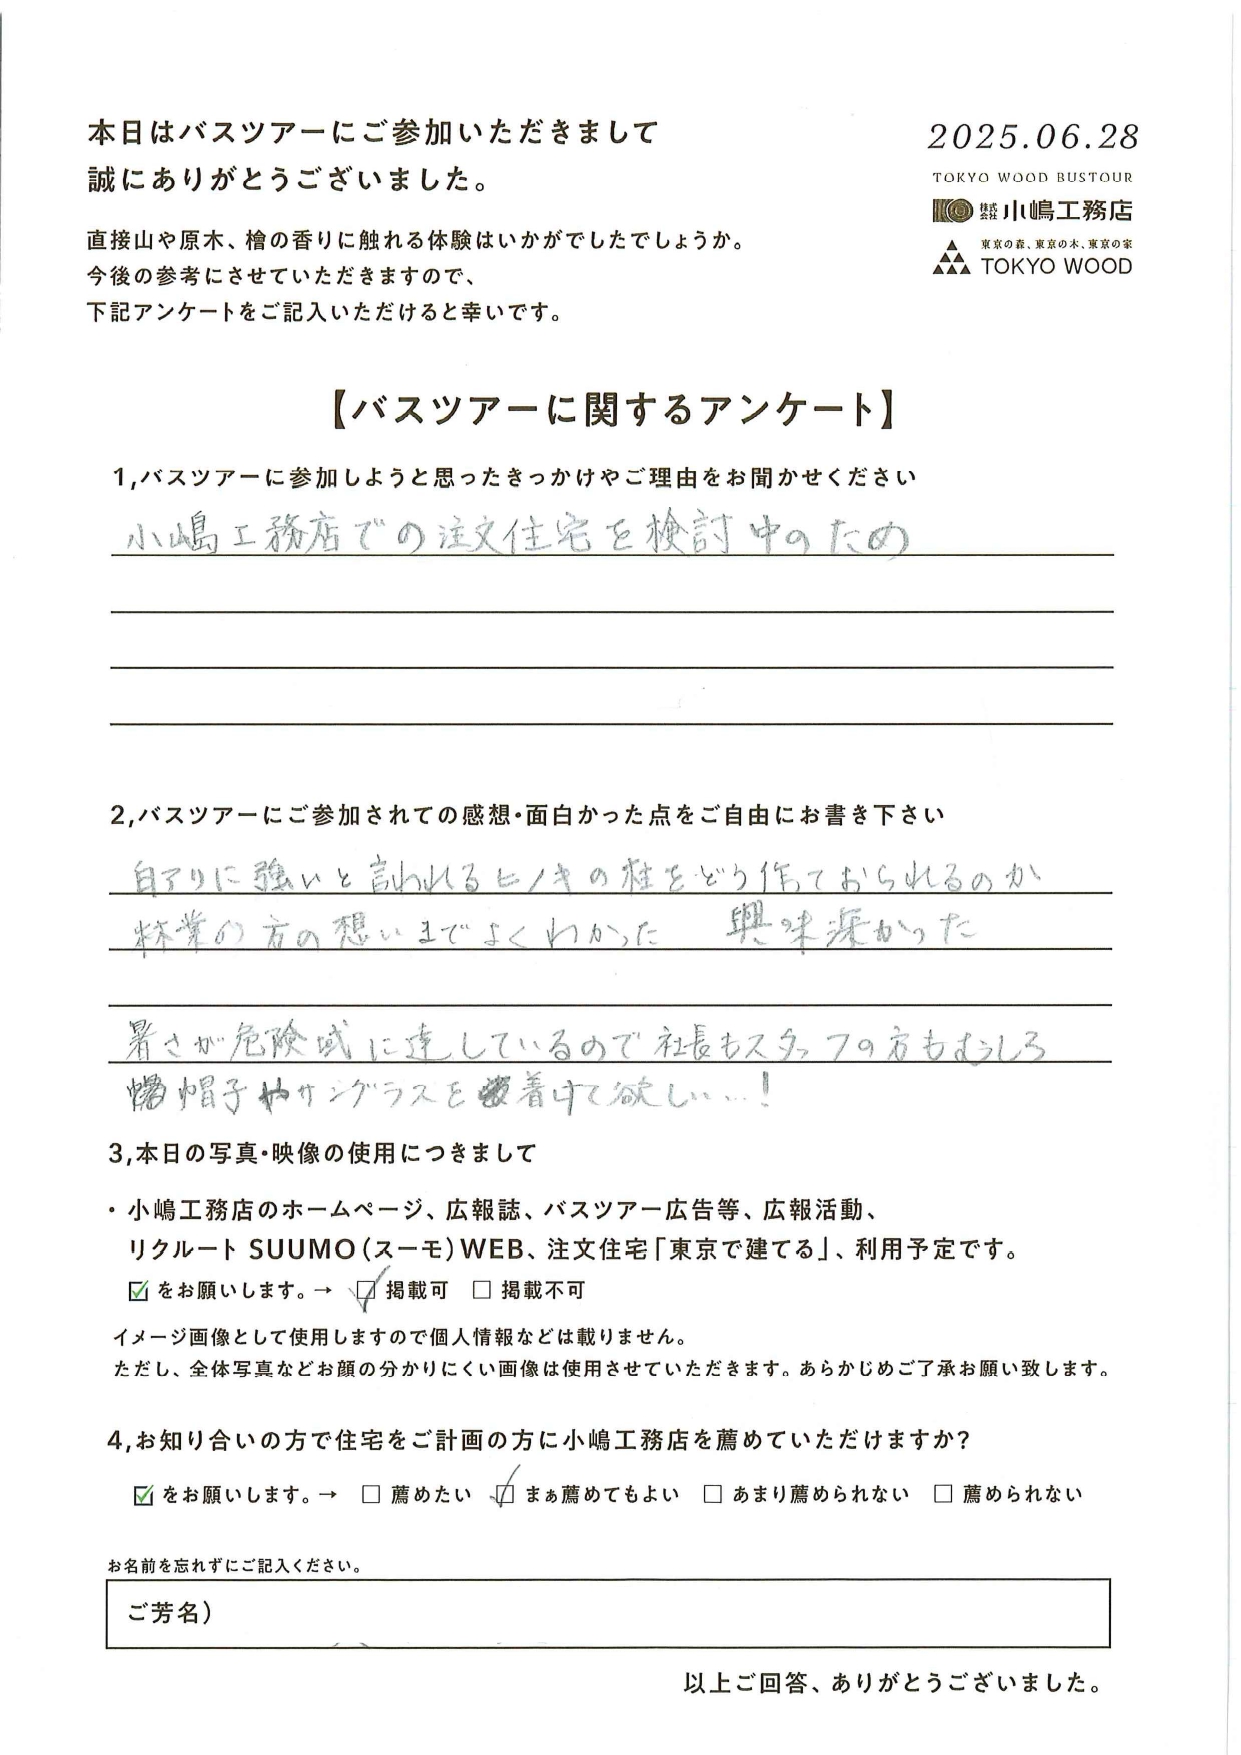 本日はバスツアーにご参加いただきまして
誠にありがとうございました。
2025.06.28
TOKYO WOOD BUSTOUR
株式会社 小嶋工務店
東京の森、東京の木、東京の家
TOKYO WOOD
直接山や原木、檜の香りに触れる体験はいかがでしたでしょうか。
今後の参考にさせていただきますので、
下記アンケートをご記入いただけると幸いです。
【バスツアーに関するアンケート】
1,バスツアーに参加しようと思ったきっかけやご理由をお聞かせください
小嶋工務店での注文住宅を検討中のため
2,バスツアーにご参加されての感想・面白かった点をご自由にお書き下さい
白アリに強いと言われるヒノキの柱をどう作っておられるのか
林業の方の想いまでよくわかった 興味深かった
暑さが危険域に達しているので社長もスタッフの方もむしろ
帽子やサングラスを着けて欲しい…!
3,本日の写真・映像の使用につきまして
・小嶋工務店のホームページ、広報誌、バスツアー広告等、広報活動、
リクルート SUUMO(スーモ)WEB、注文住宅「東京で建てる」、利用予定です。
☑をお願いします。→ ☑掲載可 □掲載不可
イメージ画像として使用しますので個人情報などは載りません。
ただし、全体写真などお顔の分かりにくい画像は使用させていただきます。あらかじめご了承お願い致します。
4,お知り合いの方で住宅をご計画の方に小嶋工務店を薦めていただけますか?
☑をお願いします。→ □薦めたい ☑まぁ薦めてもよい □あまり薦められない □薦められない
お名前を忘れずにご記入ください。
ご芳名)
以上ご回答、ありがとうございました。